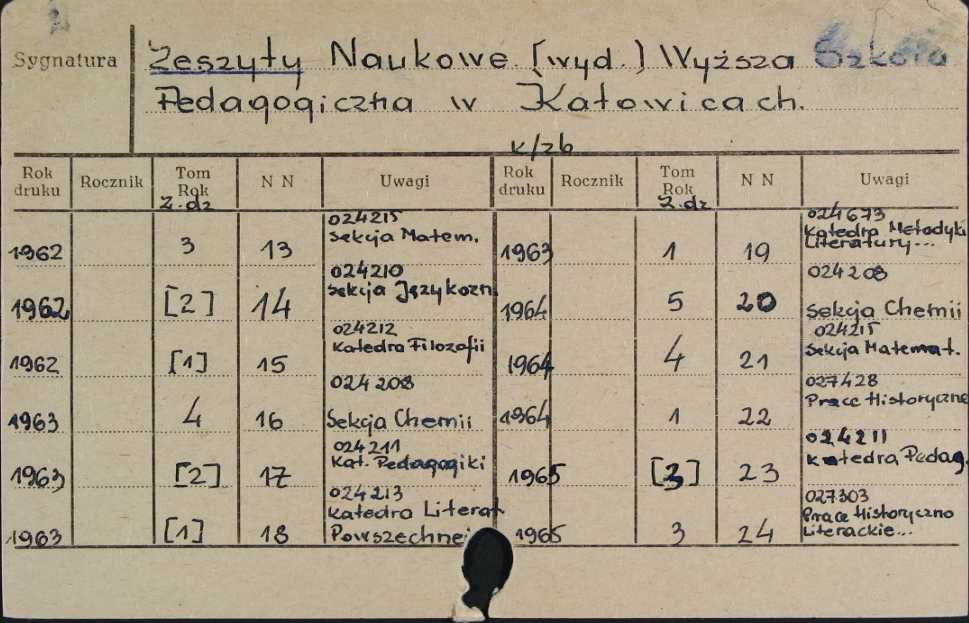 Sygnatura Zeszyty Naukowe [wyd.] Wyższa Szkoła
Pedagogiczna w Katowicach.
k/zb
Rok druku Rocznik Tom Rok Z. dz N N Uwagi Rok druku Rocznik Tom Rok Z. dz N N Uwagi
1962 3 13 024215 Sekcja Matem.
1962 [2] 14 024210 Sekcja Językozn.
1962 [1] 15 024212 Katedra Filozofii
1963 4 16 024208 Sekcja Chemii
1963 [2] 17 024211 Kat. Pedagogiki
1963 [1] 18 024213 Katedra Literat Powszechnej
1963 1 19 024673 Katedra Metodyki Literatury...
1964 5 20 024208 Sekcja Chemii
1964 4 21 024215 Sekcja Matemat.
1964 1 22 027428 Prace Historyczne
1965 [3] 23 024211 Katedra Pedag.
1965 3 24 027303 Prace Historyczno Literackie...